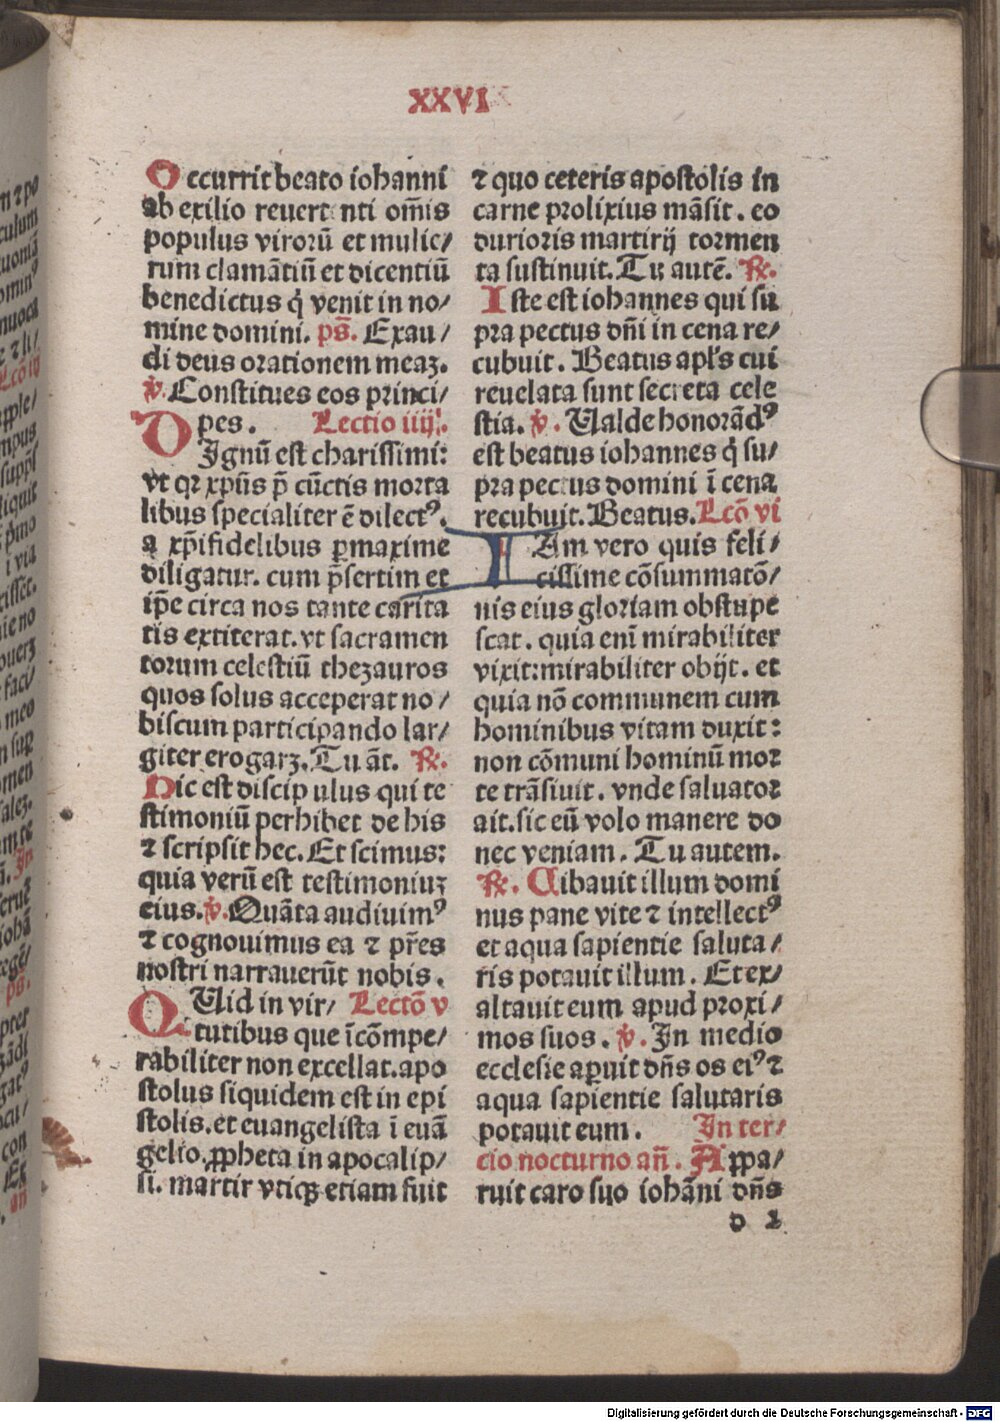 XXVI
Occurrit beato iohanni
ab exilio revert nti om̄is
populus virorū et mulie/
rum clamātiū et dicentiū
benedictus q̇ venit in no/
mine domini. ps̄. Exau/
di deus orationem meaꝫ.
℣. Constitues eos princi/
pes. Lectio iiij.
DIgnū est charissimi:
vt qꝛ xp̄us p̄ cūctis morta
libus specialiter ē dilectꝰ.
a xp̄ifidelibus ꝑmaxime
diligatur. cum p̄sertim et
ip̄e circa nos tante carita
tis extiterat. vt sacramen
torum celestiū thezauros
quos solus acceperat no/
biscum participando lar/
giter erogarꝫ. Tu āt. ℟.
Hic est discipulus qui te
stimoniū perhibet de his
⁊ scripsit hec. Et scimus:
quia verū est testimoniuꝫ
eius. ℣. Quāta audiuimꝰ
⁊ cognouimus ea ⁊ pr̄es
nostri narrauerūt nobis.
QUid in vir/ Lectō v
tutibus que īcōmpe/
rabiliter non excellat. apo
stolus siquidem est in epi
stolis. et euangelista ī euā
gelio. ꝓpheta in apocalip/
si. martir vtiqꝫ etiam fuit
⁊ quo ceteris apostolis in
carne prolixius māsit. eo
durioris martirij tormen
ta sustinuit. Tu autē. ℟.
Iste est iohannes qui su
pra pectus dn̄i in cena re/
cubuit. Beatus apl̄s cui
reuelata sunt secreta cele
stia. ℣. Ualde honorādꝰ
est beatus iohannes q̇ su/
pra pectus domini ī cena
recubuit. Beatus. Lcō vi
IAm vero quis feli/
cissime cōsummatō/
nis eius gloriam obstupe
scat. quia enī mirabiliter
vixit: mirabiliter obijt. et
quia nō communem cum
hominibus vitam duxit:
non cōmuni hominū mor
te trāsiuit. vnde saluator
ait. sic eū volo manere do
nec veniam. Tu autem.
℟. Cibauit illum domi
nus pane vite ⁊ intellectꝰ
et aqua sapientie saluta/
ris potauit illum. Et ex/
altauit eum apud proxi/
mos suos. ℣. In medio
ecclesie aperuit dn̄s os eiꝰ ⁊
aqua sapientie salutaris
potauit eum. In ter/
cio nocturno an̄. Appa/
ruit caro suo iohāni dn̄s
d 2
Digitalisierung gefördert durch die Deutsche Forschungsgemeinschaft - DFG